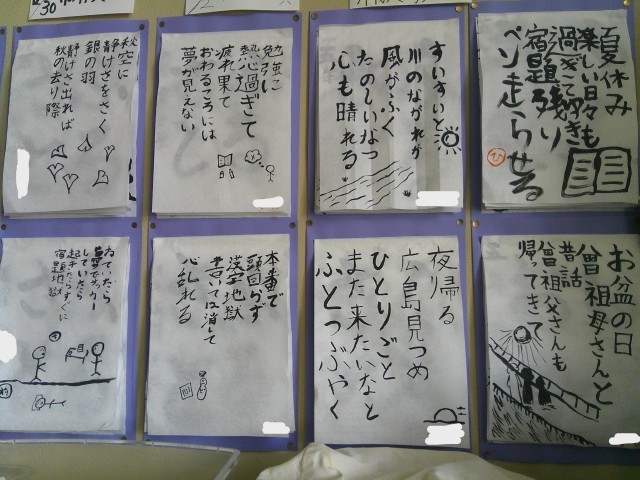 夏休み
楽しい日々も
過ぎて
宿題残り
ペン走らせる
すいすいと
川のながれが
風がふく
たのしいなつ
心も晴れる
勉強に
熱過ぎて
疲れ果て
おわるころには
夢が見えない
秋空に
静けさをさく
銀の羽
静けさ出れば
秋の去り際
お盆の日
曾祖母さんと
昔話
曾祖父さんも
帰ってきて
夜帰る
広島見つめ
ひとりごと
また来たいなと
ふとつぶやく
本番で
頭回らず
漢字地獄
書いては消して
心乱れる
ねていたら
夢でサッカー
していたら
起きたらすぐに
宿題地獄